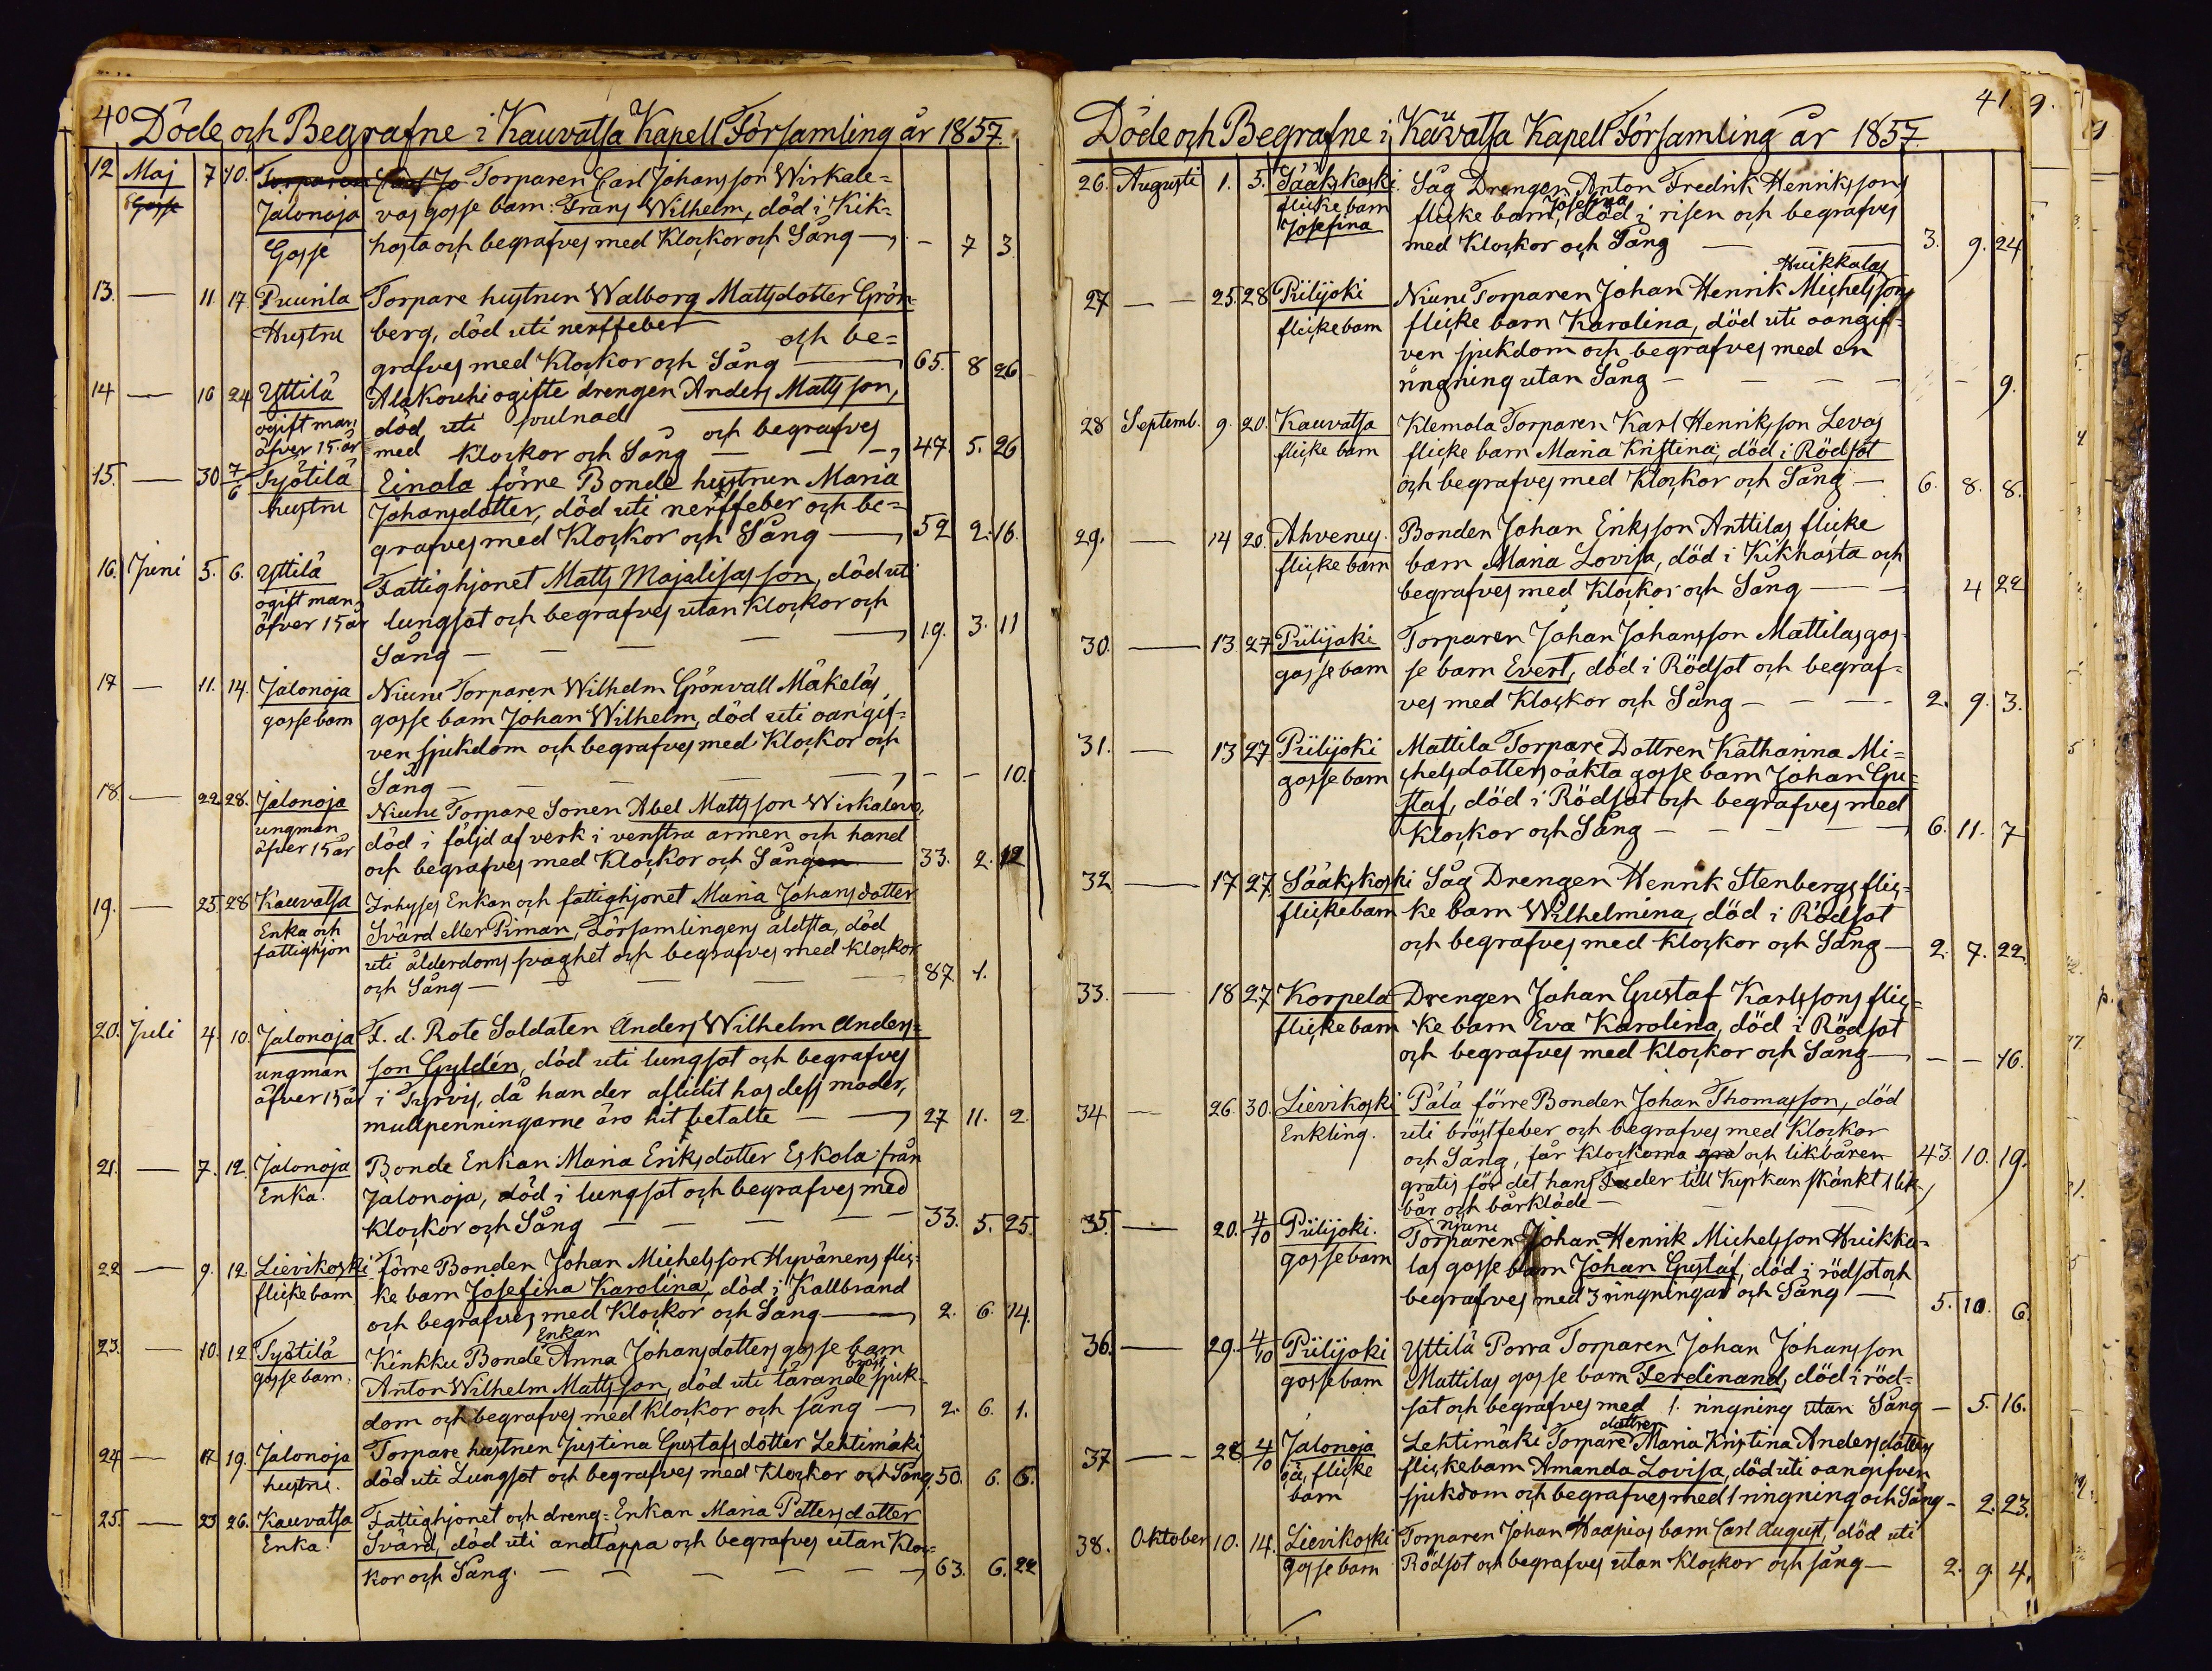 40 Döde och Begrafne i Kauvatsa Kapell Församling år 1857.
12 Maj 7 10. Torparen Carl Jo Torparen Carl Johansson Wirkale=
Gosse Jalonoja vas gosse barn: Frans Wilhelm, död i Kik=
Gosse hosta och begrafves med Klockor och Sång — - 7 3
13. — 11. 17. Puurila Torpare hustrun Walborg Mattsdotter Grön=
Hustru berg, död uti nerffeber och be=
grafves med Klockor och Sång — 65. 8 26
14 — 16 24 Yttilä Alakouhi ogifte drengen Anders Mattsson,
ogift man död uti svulnad och begrafves
öfver 15. år med Klockor och Sång — — 47. 5. 26
15. — 30 7/6 Työtilä Einola förre Bonde hustrun Maria
hustru Johansdotter, död uti nerffeber och be=
grafves med Klockor och Sång — 52 2. 16.
16. Juni 5. 6. Yttilä Fattighjonet Matts Majalisasson, död uti
ogift man lungsot och begrafves utan Klockor och
öfver 15 år Sång — — — 19. 3. 11
17 — 11. 14. Jalonoja Niuni Torparen Wilhelm Grönvall Mäkeläs
gosse barn gosse barn Johan Wilhelm, död uti oangif=
ven sjukdom och begrafves med Klockor och
Sång — — — - - 10.
18. — 22. 28. Jalonoja Niuni Torpare Sonen Abel Mattsson Wirkaleva,
ungman död i följd af verk i venstra armen och hand
öfver 15 år och begrafves med Klockor och Sången — 33. 2. 12
19. — 25 28 Kauvatsa Inhyses Enkan och fattighjonet Maria Johansdotter
Enka och Svärd eller Piman, Församlingens äldsta, död
fattighjon uti ålderdoms svaghet och begrafves med Klockor
och Sång — — — 87. 1.
20. Juli 4. 10. Jalonoja F. d. Rote Soldaten Anders Wilhelm Anders=
ungman son Gyldén, död uti lungsot och begrafves
öfver 15 år i Tyrvis, då han der aflidit hos dess moder,
mullpenningarne äro hit betalte — — 27 11. 2.
21. — 7. 12. Jalonoja Bonde Enkan Maria Eriksdotter Eskola från
Enka. Jalonoja, död i lungsot och begrafves med
Klockor och Sång — — — 33. 5. 25.
22 — 9. 12 Lievikoski förre Bonden Johan Michelsson Hyvänens flic=
flicke barn ke barn Josefina Karolina, död i Kallbrand
och begrafves med Klockor och Sång — 2. 6. 14.
23. — 10. 12. Työtilä Kinkku Bonde Enkan Anna Johansdotters gosse barn
gosse barn. Anton Wilhelm Mattsson, död uti tärande bröst sjuk=
dom och begrafves med Klockor och sång — 2. 6. 1.
24 — 17 19. Jalonoja Torpare hustrun Justina Gustafsdotter Lehtimäki
hustru. död uti Lungsot och begrafves med Klockor och Sång. 50. 6. 6.
25. — 23 26. Kauvatsa Fattighjonet och dreng=Enkan Maria Pettersdotter
Enka. Svärd, död uti andtäppa och begrafves utan Kloc=
kor och Sång. — — — — 63. 6. 22
41.
Döde och Begrafne i Kauvatsa Kapell Församling år 1857.
26. Augusti 1. 5. Sääkskoski Såg Drengen Anton Fredrik Henrikssons
flicke barn flicke barn, Josefina död i risen och begrafves
Josefina med Klockor och Sång — 3. 9. 24
27 — 25. 28 Piilijoki Niuni Torparen Johan Henrik Michelssons Huikkalas
flicke barn flicke barn Karolina, död uti oangif=
ven sjukdom och begrafves med en
ringning utan Sång — — — - - 9.
28 Septemb. 9. 20. Kauvatsa Klemola Torparen Karl Henriksson Levas
flicke barn flicke barn Maria Kristina, död i Rödsot
och begrafves med Klockor och Sång — 6. 8. 8.
29. — 14 20. Ahvenus. Bonden Johan Eriksson Anttilas flicke
flicke barn barn Maria Lovisa, död i Kikhosta och
begrafves med Klockor och Sång — — 4 22
30. — 13. 27 Piilijoki Torparen Johan Johansson Mattilas gos=
gosse barn se barn Evert, död i Rödsot och begraf=
ves med Klockor och Sång — — — 2. 9. 3.
31. — 13 27. Piilijoki Mattila Torpare Dottren Katharina Mi=
gosse barn chelsdotters oäkta gosse barn Johan Gu=
staf, död i Rödsot och begrafves med
Klockor och Sång — — — 6. 11. 7
32 — 17 27. Sääkskoski Såg Drengen Henrik Stenbergs flic=
flicke barn ke barn Wilhelmina, död i Rödsot
och begrafves med Klockor och Sång — 2. 7. 22.
33. — 18 27 Korpela Drengen Johan Gustaf Karlssons flic=
flicke barn ke barn Eva Karolina, död i Rödsot
och begrafves med Klockor och Sång — - - 16.
34 — 26. 30. Lievikoski Pälä förre Bonden Johan Thomasson, död
Enkling. uti bröstfeber och begrafves med Klockor
och Sång, får Klockorna gra och likbåren 43. 10. 19.
gratis för det hans Fader till Kyrkan skänkt 1 lik
bår och bårkläde —
35. — 20. 4/10 Piilijoki. Torparen niuni Johan Henrik Michelsson Huikka=
gosse barn las gosse barn Johan Gustaf, död i rödsot och
begrafves med 3 ringningar och Sång — 5. 10. 6.
36. — 29. 4/10 Piilijoki Yttilä Porra Torparen Johan Johansson
gosse barn Mattilas gosse barn Ferdinand, död i röd=
sot och begrafves med 1. ringning utan Sång — 5. 16.
37 — 28 4/10 Jalonoja Lehtimäki Torpare dottren Maria Kristina Andersdotters
oä, flicke flicke barn Amanda Lovisa, död uti oangifven
barn sjukdom och begrafves med 1 ringning och Sång - 2. 23.
38. Oktober 10. 14. Lievikoski Torparen Johan Haapios barn Carl August, död uti
gosse barn Rödsot och begrafves utan Klockor och sång — 2. 9. 4.